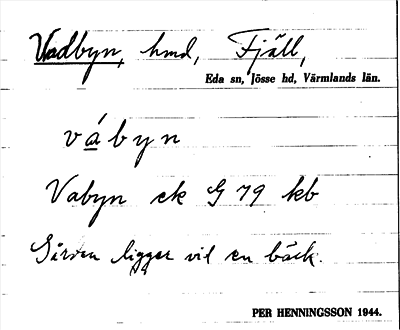 Vadbyn, hmd, Fjäll,
Eda sn, Jösse hd, Värmlands län.
vábyn
Vabyn ek G 79 kb
Gården ligger vil en bäck.
PER HENNINGSSON 1944.